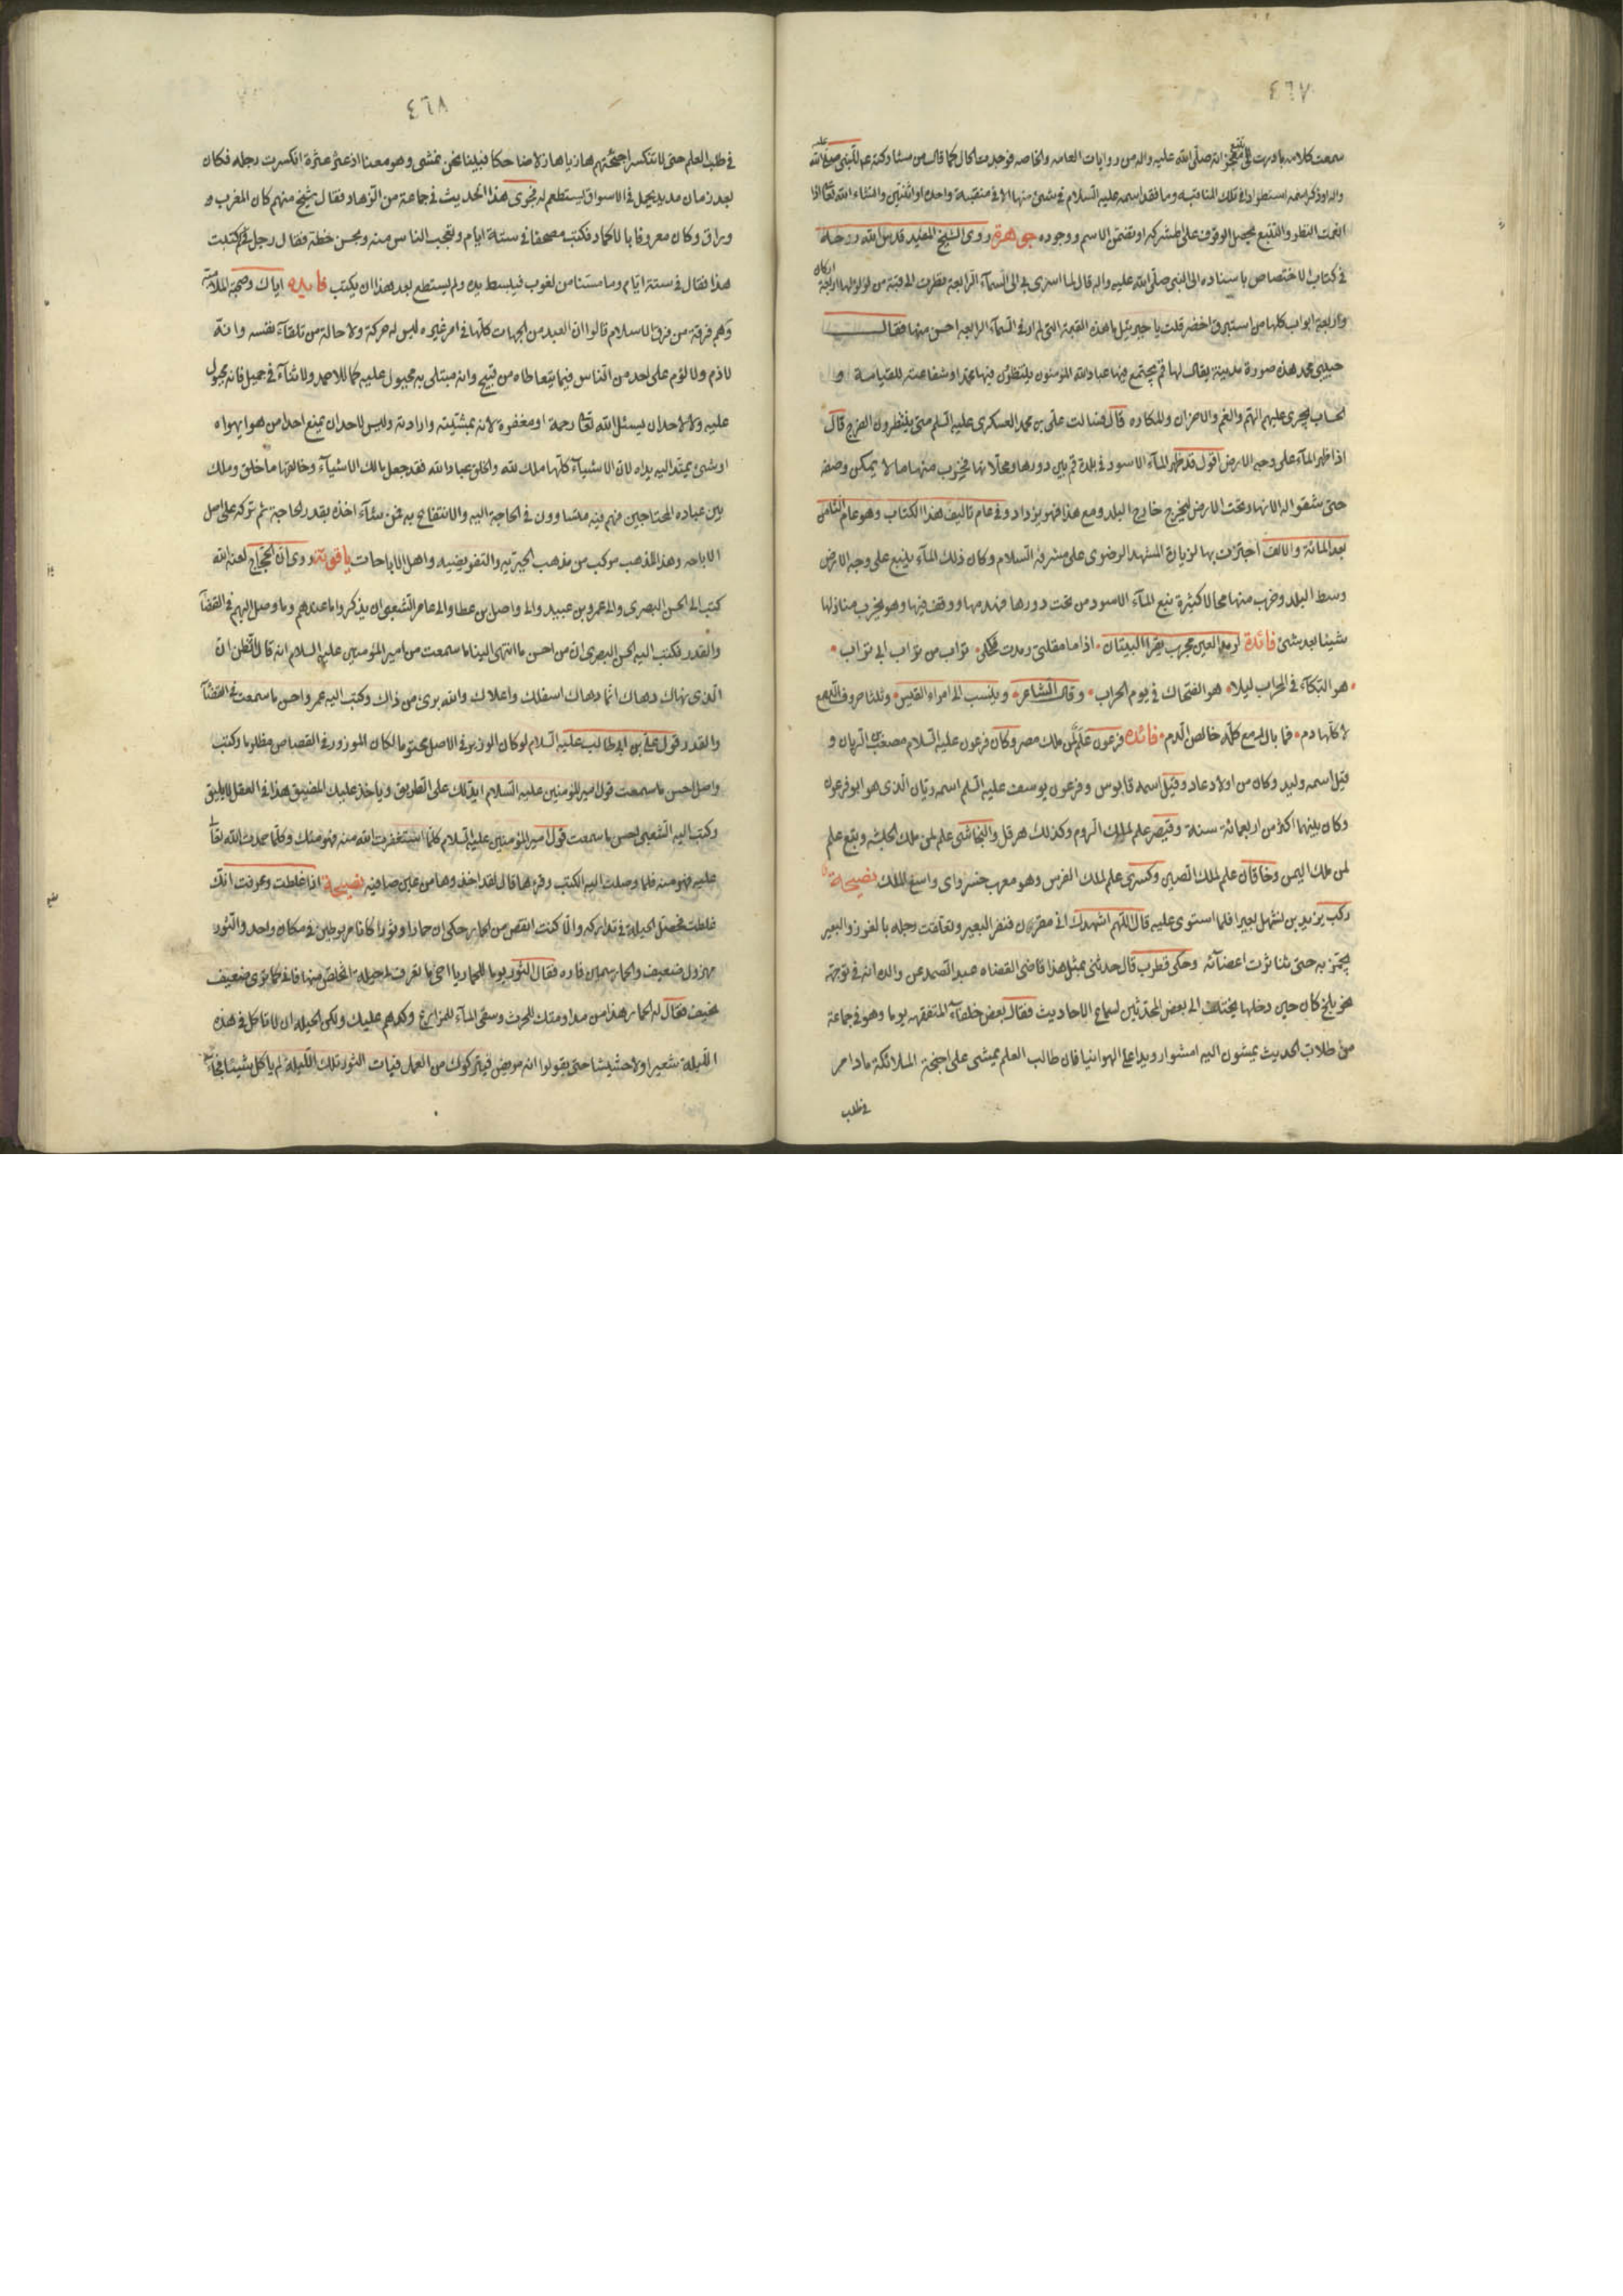 ٤٦٧
سمعت كلامه بادرت الى تتبع معجزاته صلّى الله عليه واله من روايات العامه والخاصه فوجدت الحال كما قال من مشاركته عم للنبى صلى الله عليه
واله وذكر اسمه استطرادا فى تلك المناقب وما فقد اسمه عليه السلام فى شىء منها الا فى منقبة واحدة او اثنتين وانشاء الله تعا اذا
انعمت النظر والتتبع يحصل الوقوف على المشركه او تضمّن الاسم ووجوده جوهرة روى الشيخ المفيد قدس الله روحه
فى كتاب الاختصاص باسناده الى النبى صلّى الله عليه واله قال لما اسرى بى الى السمآء الرابعة نظرت الى قبة من لؤلؤ لها اربعة اركان
واربعة ابواب كلها من استبرق اخضر قلت يا جبرئيل ما هذه القبة التى لم ار فى السمآء الرابعة احسن منها فقال
حبيبى محمد هذه صورة مدينة يقال لها قم يجتمع فيها عباد الله المؤمنون ينتظرون فيها محمدا وشفاعته للقيامة و
الحساب يجرى عليهم الهم والغم والاحزان والمكاره قال فسالت على بن محمد العسكرى عليه السلم متى ينتظرون الفرج قال
اذا ظهر المآء على وجه الارض اقول قد ظهر المآء الاسود فى بلدة قم بين دورها ومحلاتها فخرب منها ما لا يمكن وصفه
حتى شقوا له الانهار تحت الارض ليخرج خارج البلد ومع هذا فهو يزداد وفى عام تاليف هذا الكتاب وهو عام الثامن
بعد المائة والالف اجتزت بها لزيارة المشهد الرضوى على مشرفه السلام وكان ذلك المآء ينبع على وجه الارض
وسط البلد وخرب منها محالا كثيرة نبع المآء الاسود من تحت دورها فهدمها ووقف فيها وهو يخرب منازلها
شيئا بعد شىء فائدة لرمد العين مجرب يقرا البيتان اذا ما مقلتى رمدت فكحلى تراب من تراب ابى تراب
هو البكآء فى المحراب ليلا هو الضحاك فى يوم الحراب وقال الشاعر وينسب الى امراء القيس وثلثا حروف الدمع
لا كلّها دم فما بال دمع كلّه خالص الدم فائده فرعون علم لمن ملك مصر وكان فرعون عليه السلام مصعب بن الريان و
قيل اسمه وليد وكان من اولاد عاد وقيل اسمه قابوس وفرعون يوسف عليه السلم اسمه ريّان الذى هو ابو فرعون
وكان بينهما اكثر من اربعمائة سنة وقيصر علم لملك الروم وكذلك هرقل والنجاشى علم لمن ملك الحبشه وتبع علم
لمن ملك اليمن وخاقان علم لملك الصين وكسرى علم لملك الفرس وهو معرب خسرو اى واسع الملك نصيحة
ركب يزيد بن نشهل بعيرا فلما استوى عليه قال اللهم اشهدك انى مقرن فنفر البعير وتعلقت رجله بالغرز والبعير
يجمز به حتى تناثرت اعضآئه وحكى قطرب قال حدثنى بمثل هذا قاضى القضاه عبد الصمد عن والده انه فى توجهه
نحو بلخ كان حين دخلها يختلف الى بعض المحدثين لسماع الاحاديث فقال بعض خلفآء المتفقهه يوما وهو فى جماعة
من طلاب الحديث يمشون اليه امشوا رويدا على الهوانيا فان طالب العلم يمشى على اجنحة الملائكة مادام
فى طلب
٤٦٨
فى طلب العلم حتى لا تنكسر اجنحتهم هازيا هازلا ضاحكا فبينا نحن نمشى وهو معنا اذ عثر عثرة انكسرت رجله فكان
بعد زمان مديد يحمل فى الاسواق ليستطعم له فجرى هذا الحديث فى جماعة من الزهاد فقال شيخ منهم كان المغرب و
وراق وكان معروفا بالالحاد فكتب مصحفا فى ستة ايام وتعجب الناس منه وبحسن خطه فقال رجل فى كم كتبت
هذا فقال فى ستة ايّام وما مسّنا من لغوب فيبست يده ولم يستطع بعد هذا ان يكتب فايده اياك وصحبة الملامتيه
وهم فرقة من فرق الاسلام قالوا ان العبد من الجهات كلّها فى امر غيره ليس له حركة ولا حالة من تلقآء نفسه وانه
لا ذم ولا لؤم على احد من الناس فيما يتعاطاه من قبيح وانه مبتلى به مجبول عليه كما لا حمد ولا ثنآء فى جميل فانه مجبول
عليه ولا لاحد ان يسئل الله تعا رحمة او مغفرة لانه بمشيّته وارادته وليس لاحد ان يمنع احدا من هوا يهواه
او شىء يمتد اليه يداه لان الاشيآء كلّها ملك لله والخلق عباد الله فقد جعل مالك الاشيآء وخالقها ما خلق وملك
بين عباده المحتاجين فهم فيه متساوون فى الحاجة اليه والانتفاع به فمن شآء اخذه بقدر الحاجة ثم تركه على اصل
الاباحه وهذا المذهب مركب من مذهب الجبريه والتفويضيه واهل الاباحات ياقوتة روى ان الحجاج لعنه الله
كتب الى الحسن البصرى والى عمرو بن عبيد والى واصل بن عطا والى عامر الشعبى ان يذكروا ما عندهم وما وصل اليهم فى القضآ
والقدر فكتب اليه الحسن البصرى ان من احسن ما انتهى الينا ما سمعت من امير المؤمنين عليه السلام انه قال اتظن ان
الذى نهاك دهاك انما دهاك اسفلك واعلاك والله برىء من ذاك وكتب اليه عمرو احسن ما سمعت فى القضآ
والقدر قول على بن ابى طالب عليه السلام لو كان الوزر فى الاصل محتوما لكان الموزور فى القصاص مظلوما وكتب
واصل احسن ما سمعت قول امير المؤمنين عليه السلام ايدلك على الطريق وياخذ عليك المضيق هذا فى العقل لا يليق
وكتب اليه الشعبى احسن ما سمعت قول امير المؤمنين عليه السلام كلّما استغفرت الله منه فهو منك وكلّما حمدت الله تعا
عليه فهو منه فلما وصلت اليه الكتب وقرءها قال لقد اخذوها من عين صافيه نصيحة اذا غلطت وعرفت انك
غلطت فحصّل الحيلة فى تداركه والّا كنت انقص من الحمار حكى ان حمارا وثورا كانا مربوطين فى مكان واحد والثور
مهزول ضعيف والحمار سمين فاره فقال الثور يوما للحمار يا اخى ما تعرف لى حيلة اتخلص منها فانى كما ترى ضعيف
نحيف فقال له الحمار هذا من مداومتك للحرث وسقى المآء للمزارع وكدهم عليك ولكن الحيله ان لا تاكل فى هذه
الليلة شعيرا ولا حشيشا حتى يقولوا انه مريض فيتركوك من العمل فبات الثور تلك الليلة لم ياكل شيئا فجآء